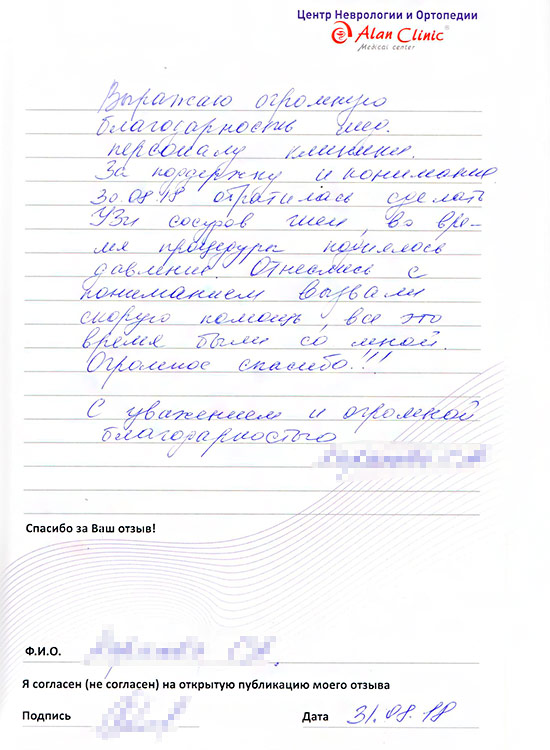 Центр Неврологии и Ортопедии
Alan Clinic®
Medical center
Выражаю огромную
благодарность мед.
персоналу клиники.
За поддержку и понимание
30.08.18 обратилась сделать
УЗИ сосудов шеи, во вре-
мя процедуры поднялось
давление. Отнеслись с
пониманием вызвали
скорую помощь, все это
время были со мной.
Огромное спасибо!!!
С уважением и огромной
благодарностью
Спасибо за Ваш отзыв!
Ф.И.О.
Я согласен (не согласен) на открытую публикацию моего отзыва
Подпись Дата 31.08.18